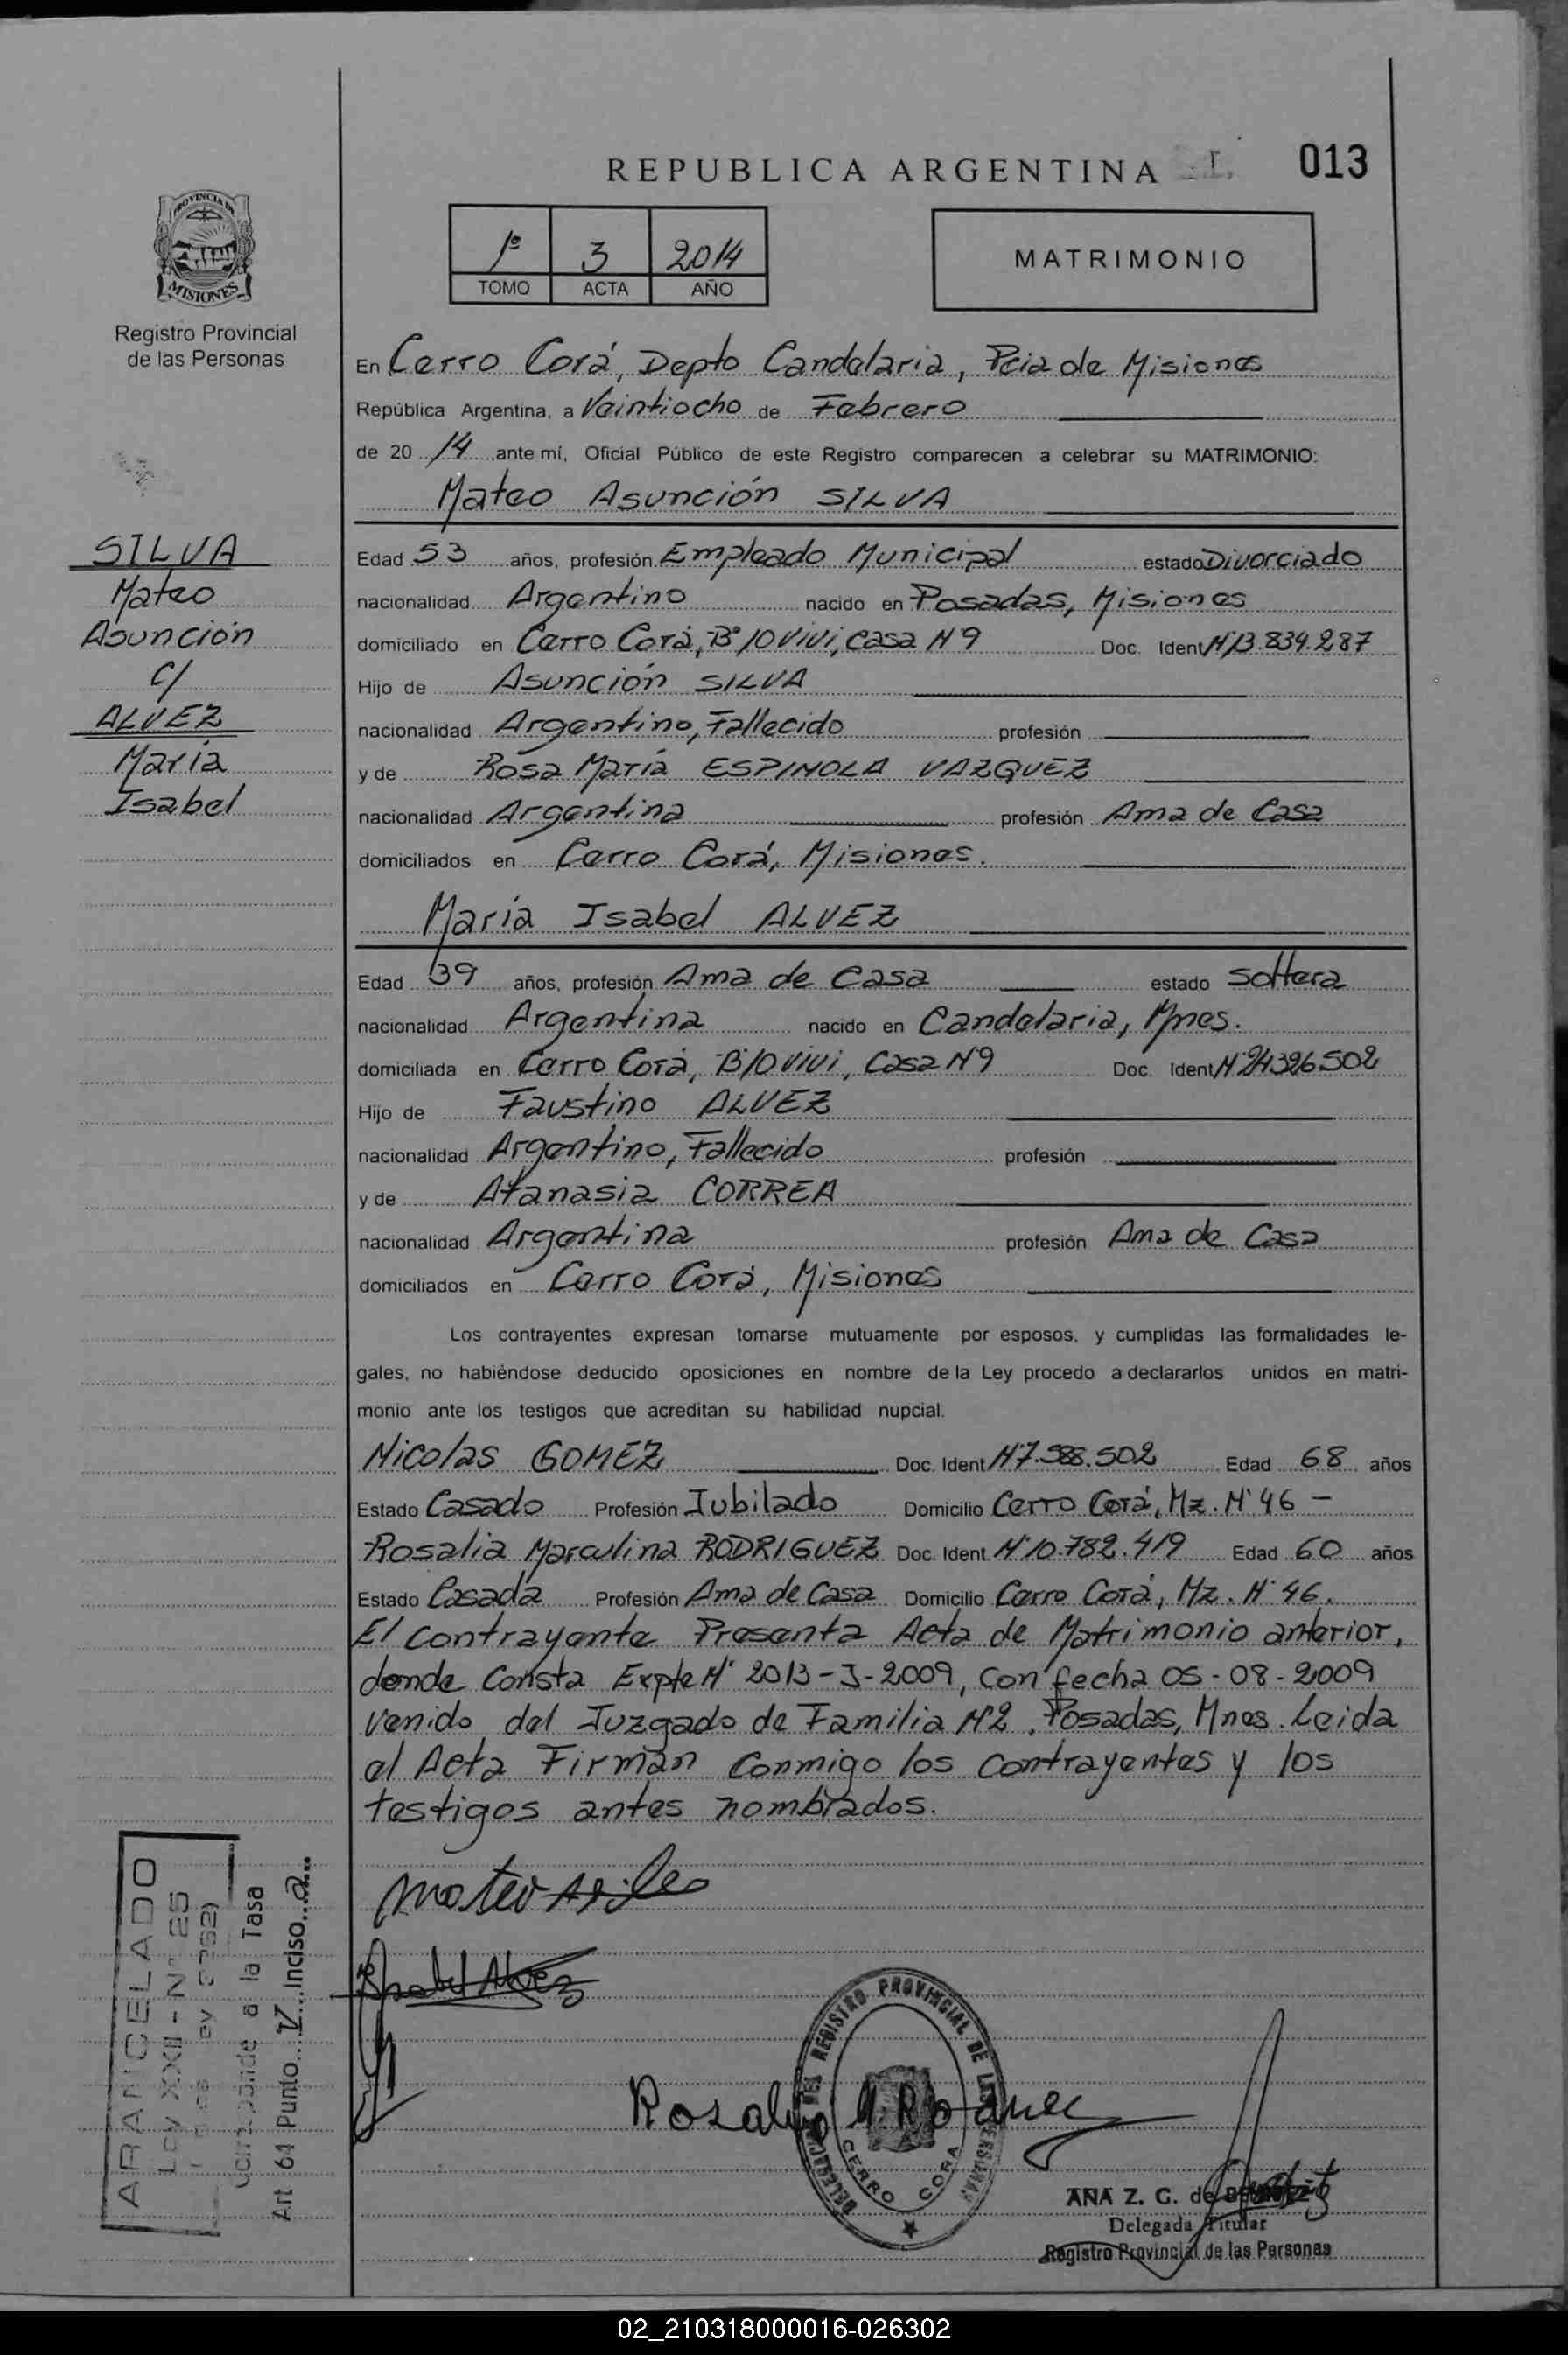 REPUBLICA ARGENTINA
013
PROVINCIA DE
MISIONES
Registro Provincial
de las Personas
1º 3 2014
TOMO ACTA AÑO
MATRIMONIO
En Cerro Corá, Depto Candelaria, Pcia de Misiones
República Argentina, a Veintiocho de Febrero
de 20 14 ante mí, Oficial Público de este Registro comparecen a celebrar su MATRIMONIO:
Mateo Asunción SILVA
SILVA
Mateo
Asunción
c/
ALVEZ
María
Isabel
Edad 53 años, profesión Empleado Municipal estado Divorciado
nacionalidad Argentino nacido en Posadas, Misiones
domiciliado en Cerro Corá, Bº IOVIVI, casa Nº 9 Doc. Ident Nº 13.839.287
Hijo de Asunción SILVA
nacionalidad Argentino, Fallecido profesión
y de Rosa María ESPINOLA VAZQUEZ
nacionalidad Argentina profesión Ama de Casa
domiciliados en Cerro Corá, Misiones.
María Isabel ALVEZ
Edad 39 años, profesión Ama de Casa estado soltera
nacionalidad Argentina nacido en Candelaria, Mnes.
domiciliada en Cerro Corá, Bº IOVIVI, Casa Nº 9 Doc. Ident Nº 24326502
Hijo de Faustino ALVEZ
nacionalidad Argentino, Fallecido profesión
y de Atanasia CORREA
nacionalidad Argentina profesión Ama de Casa
domiciliados en Cerro Corá, Misiones
Los contrayentes expresan tomarse mutuamente por esposos, y cumplidas las formalidades le-
gales, no habiéndose deducido oposiciones en nombre de la Ley procedo a declararlos unidos en matri-
monio ante los testigos que acreditan su habilidad nupcial.
Nicolas GOMEZ Doc. Ident Nº 7.588.502 Edad 68 años
Estado Casado Profesión Jubilado Domicilio Cerro Corá, Mz. Nº 46 -
Rosalia Marculina RODRIGUEZ Doc. Ident. Nº 10.782.419 Edad 60 años
Estado Casada Profesión Ama de Casa Domicilio Cerro Corá, Mz. Nº 46.
El contrayente Presenta Acta de Matrimonio anterior,
donde Consta Expte Nº 2013-J-2009, con fecha 05-08-2009
venido del Juzgado de Familia Nº 2, Posadas, Mnes. Leida
el Acta Firman Conmigo los contrayentes y los
testigos antes nombrados.
ARANCELADO
Ley XXII - Nº 25
Corresponde a la Tasa
Art 64 Punto V Inciso a
mateo silva
Isabel Alvez
DELEGACION DEL REGISTRO PROVINCIAL DE LAS PERSONAS
CERRO CORA
ANA Z. G. de
Delegada Titular
Registro Provincial de las Personas
02_210318000016-026302